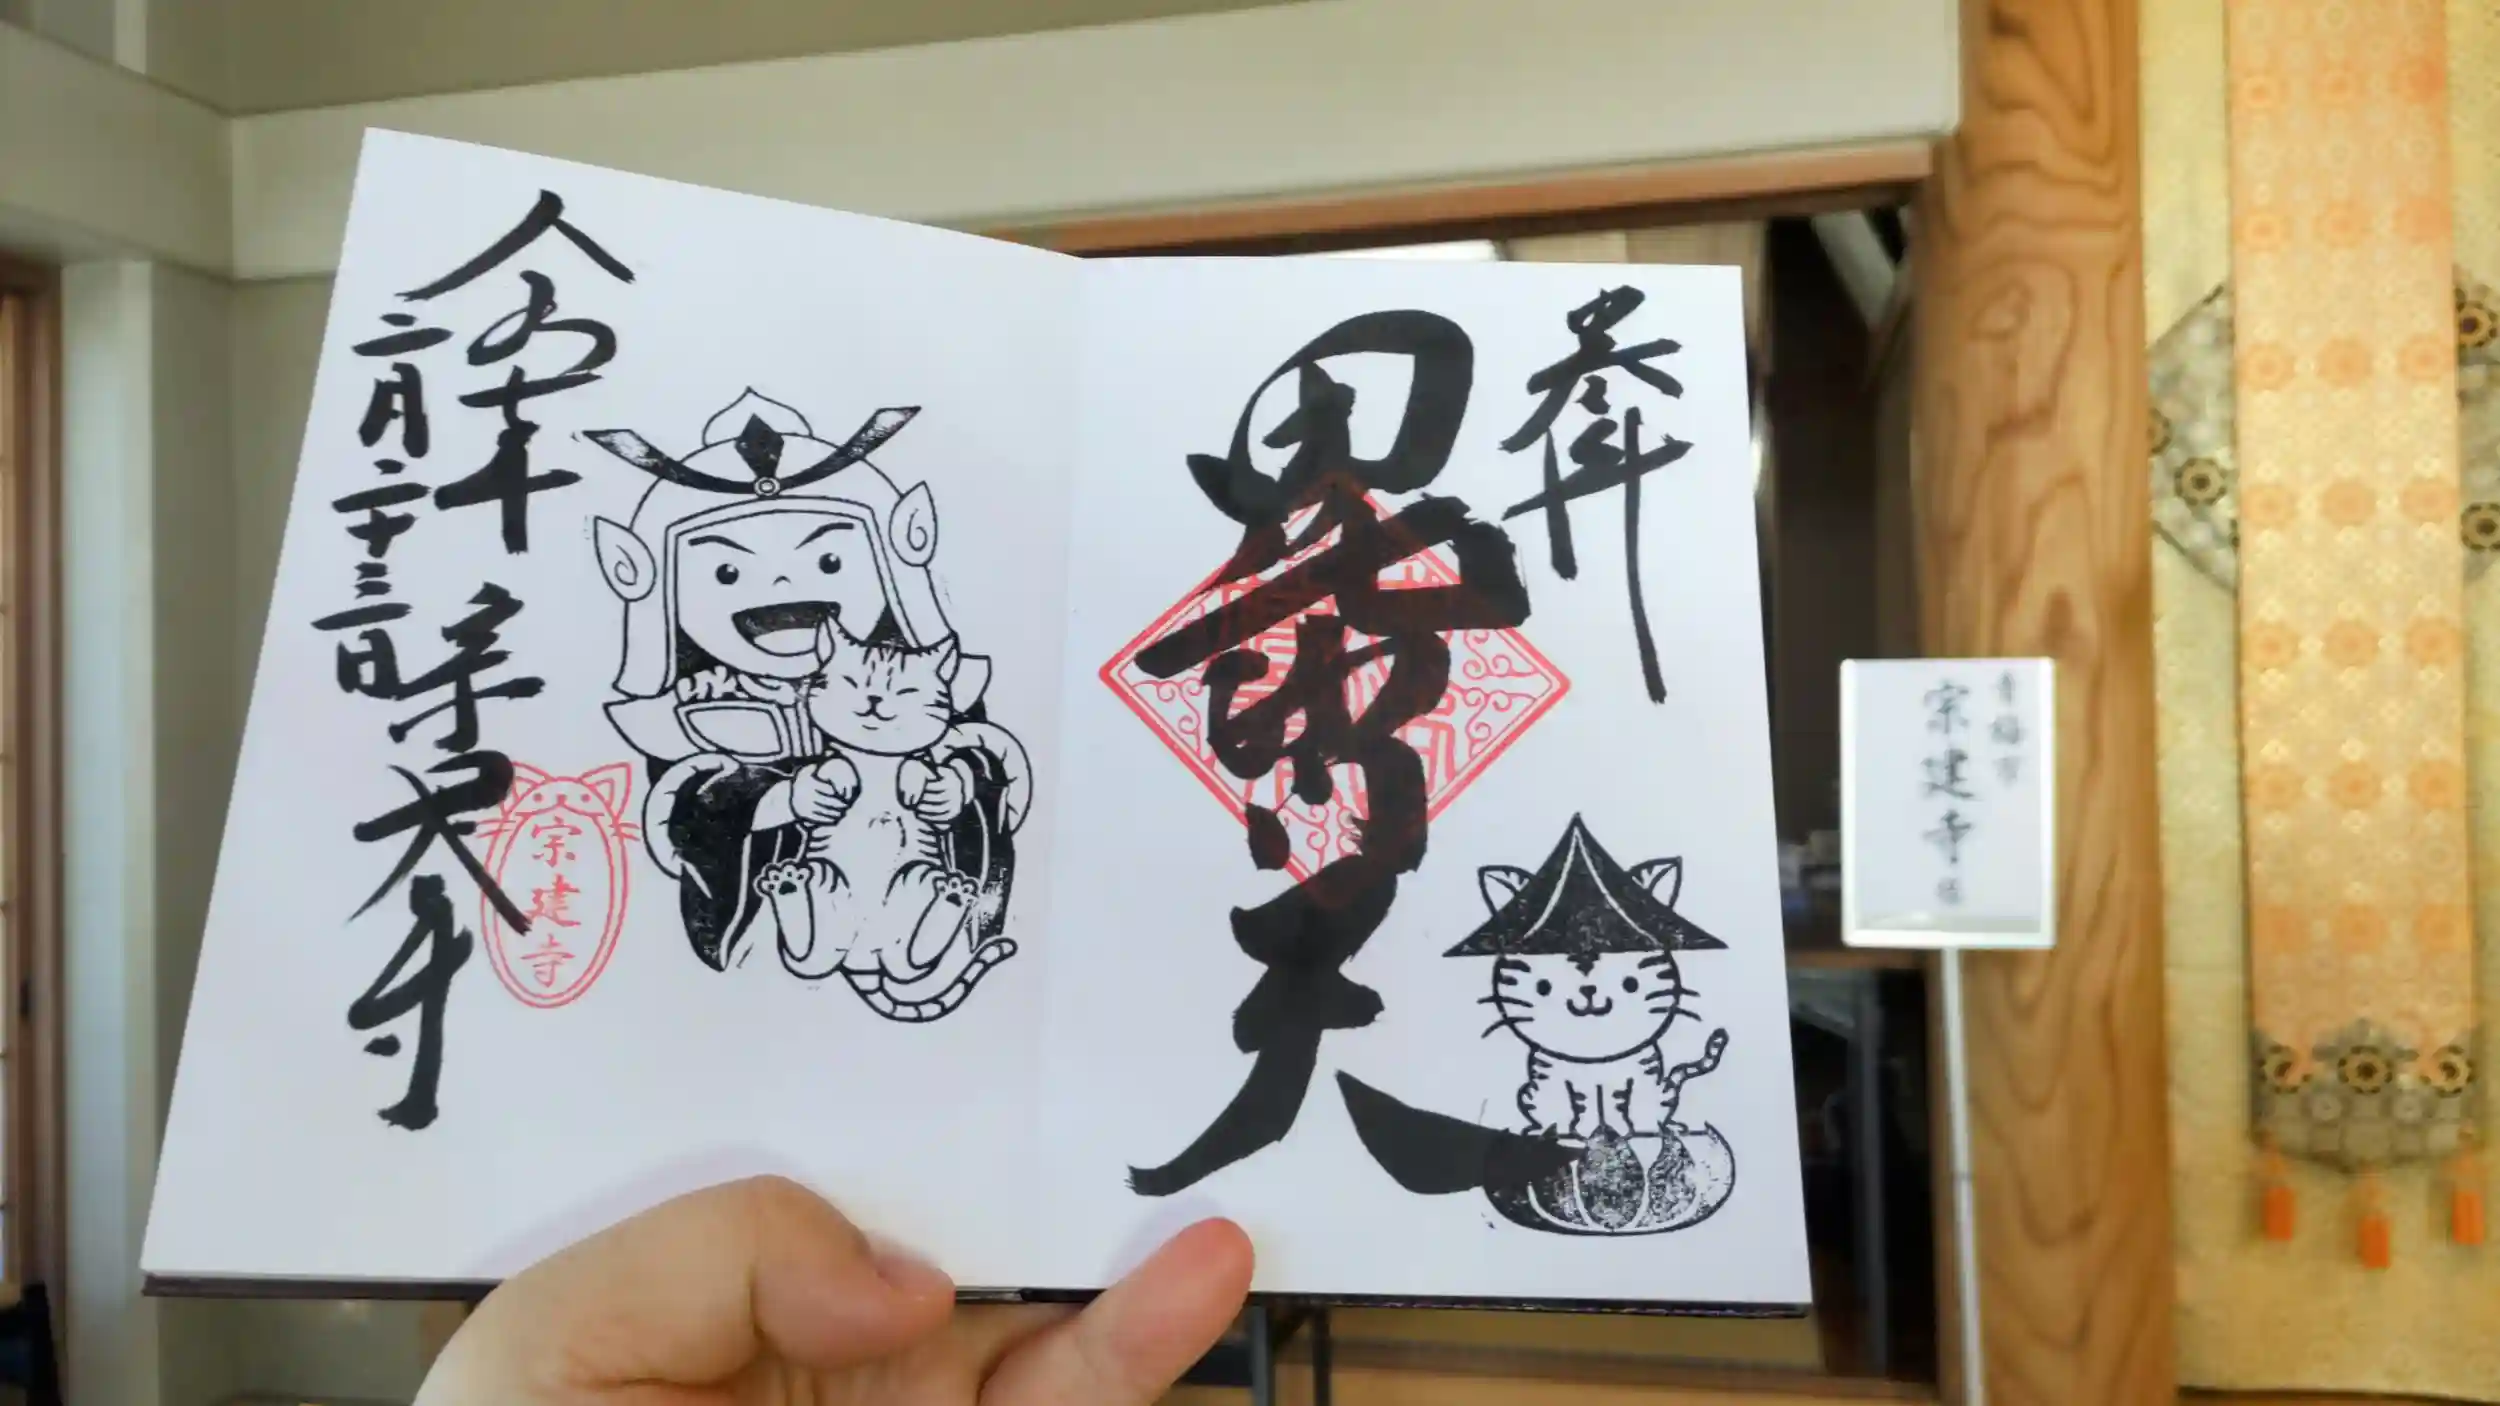 奉拝
毘沙門天
令和七年
二月二十三日
宗建寺
宗建寺
青梅市
宗建寺様